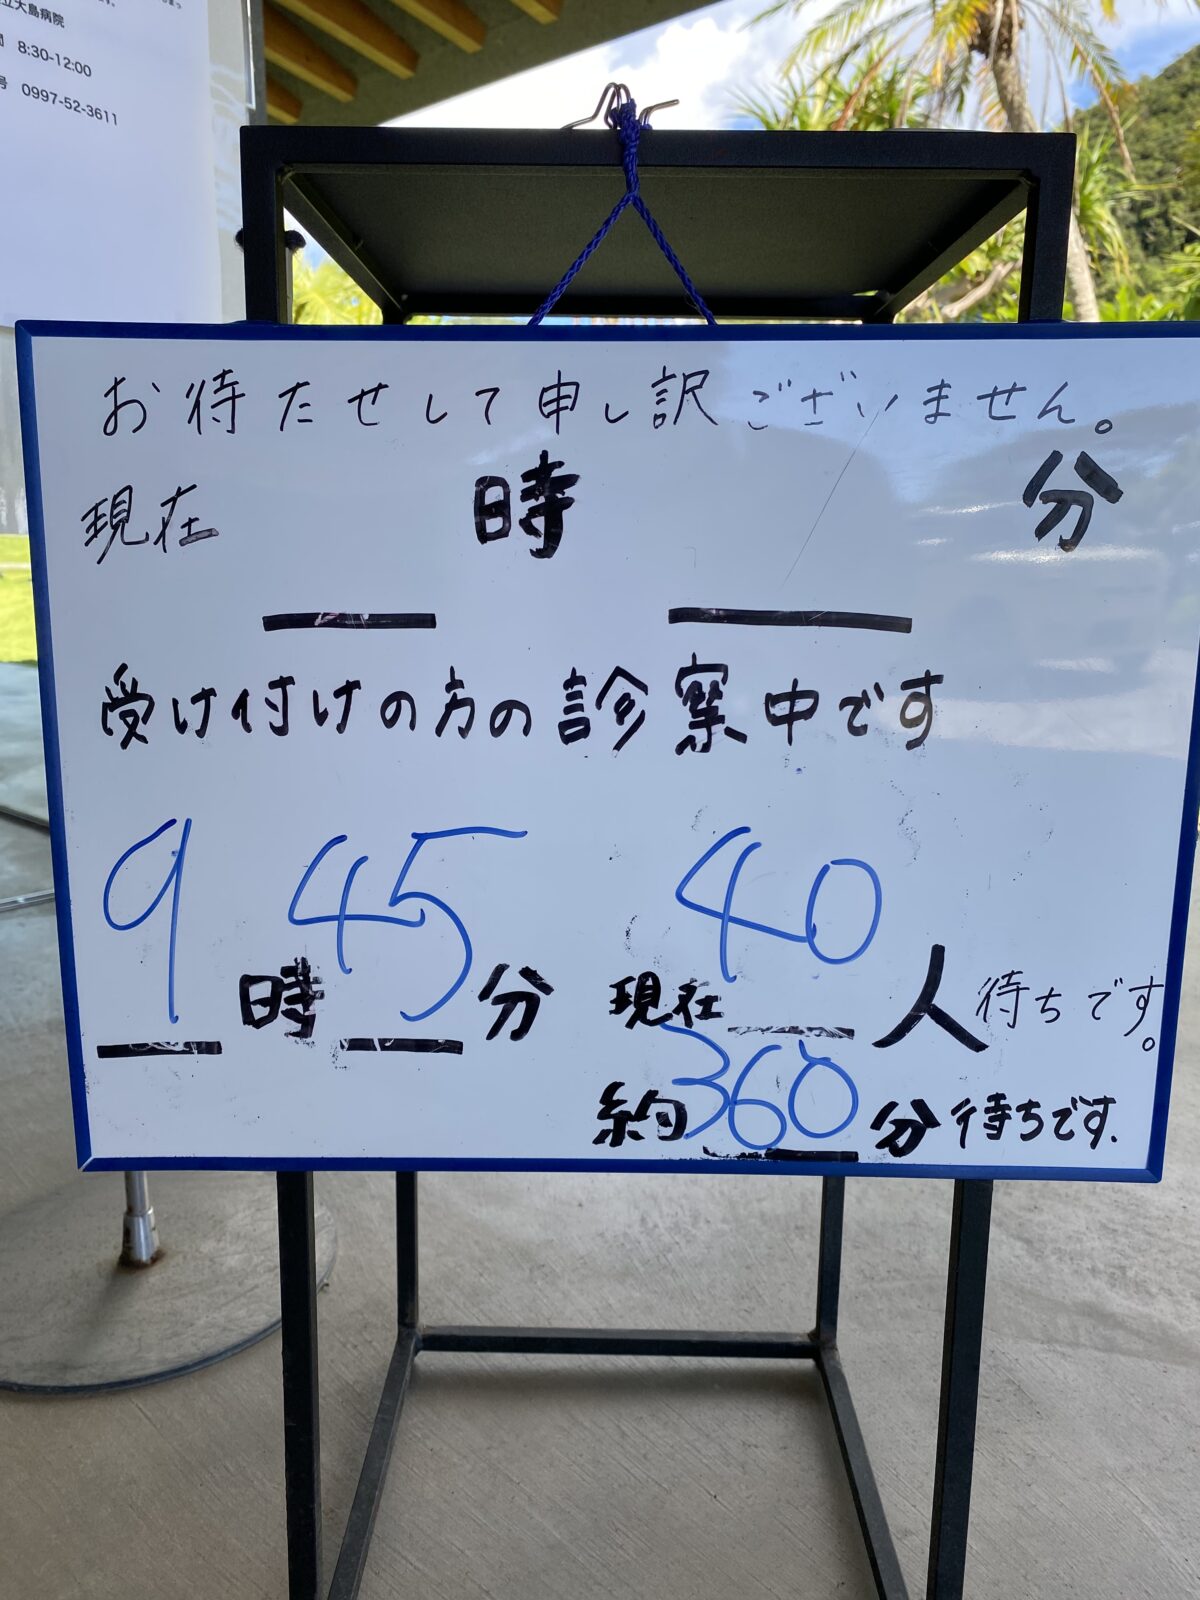 立大島病院
8:30-12:00
号 0997-52-3611
お待たせして申し訳ございません。
現在 時 分
受け付けの方の診察中です
9時45分 現在40人待ちです。
約360分待ちです.